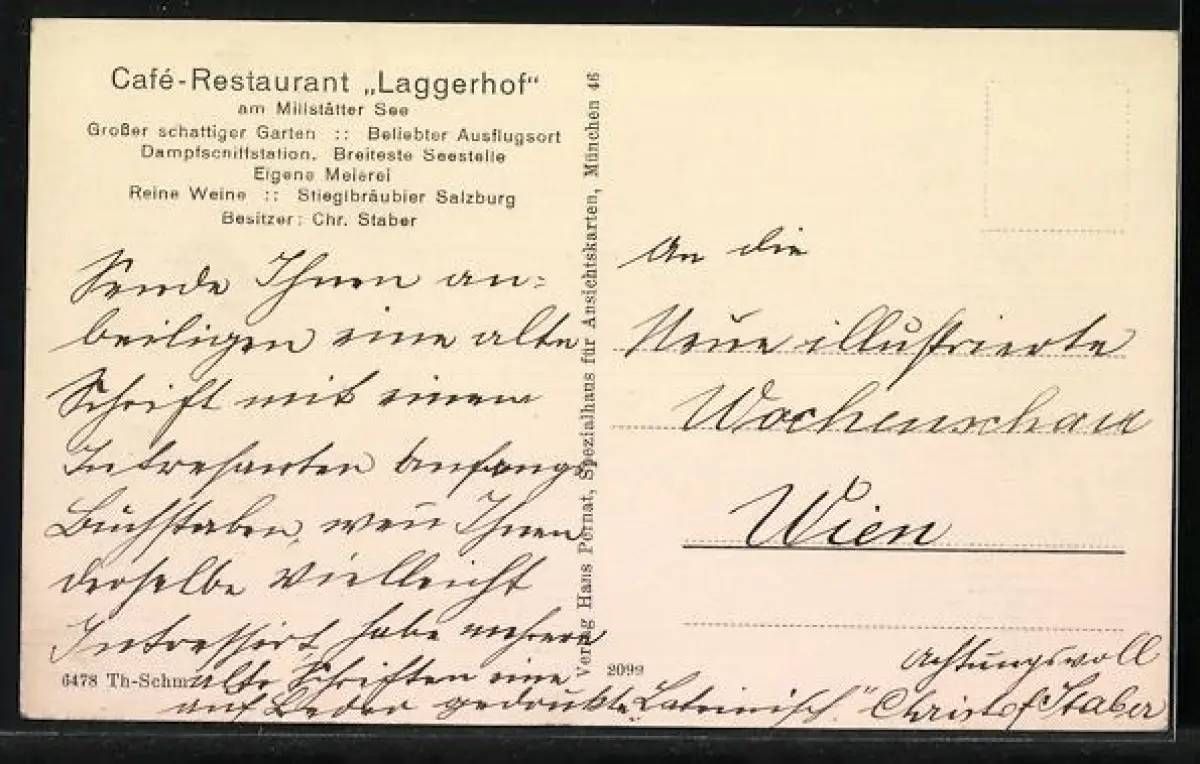 Café-Restaurant „Laggerhof“
am Millstätter See
Großer schattiger Garten :: Beliebter Ausflugsort
Dampfschiffstation. Breiteste Seestelle
Eigene Meierei
Reine Weine :: Stieglbräubier Salzburg
Besitzer: Chr. Staber
Sende Ihnen an=
beiligen eine alte
Schrift mit einem
Intresanten Anfangs
Buchstaben, wen Ihnen
derselbe vielleicht
Intressirt, habe mehrere
alte Schriften eine
auf Leder gedrukte „Lateinisch.“
6478 Th-Schm
Verlag Hans Pernat, Spezialhaus für Ansichtskarten, München 46
2099
An die
Neue illustrierte
Wochenschau
Wien
Achtungsvoll
Christof Staber